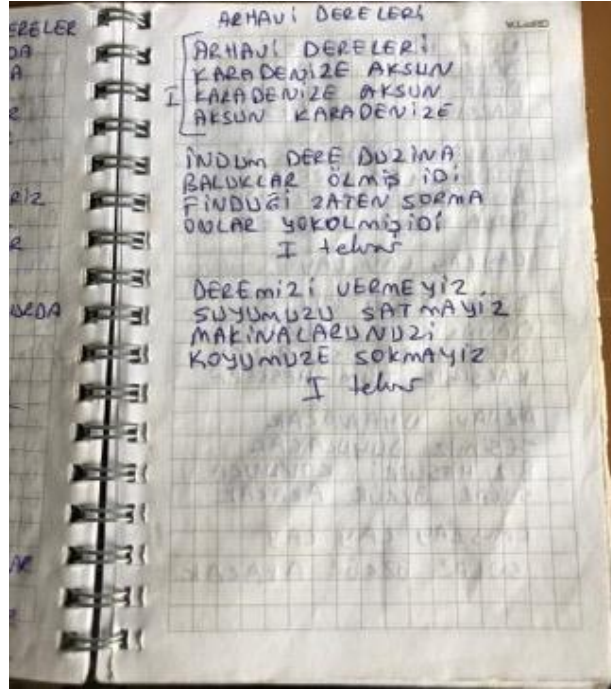 ERELER
DA
A
RİZ
R
URDA
AR
R
ARHAVİ DERELERİ
ARHAVİ DERELERİ
KARADENİZE AKSUN
I KARADENİZE AKSUN
AKSUN KARADENİZE
İNDUM DERE DUZİNA
BALUKLAR ÖLMİŞ İDİ
FİNDUĞİ ZATEN SORMA
ONLAR YOKOLMİŞİDİ
I tekrar
DEREMİZİ VERMEYİZ
SUYUMUZU SATMAYIZ
MAKİNALARUNUZİ
KOYUMUZE SOKMAYIZ
I tekrar